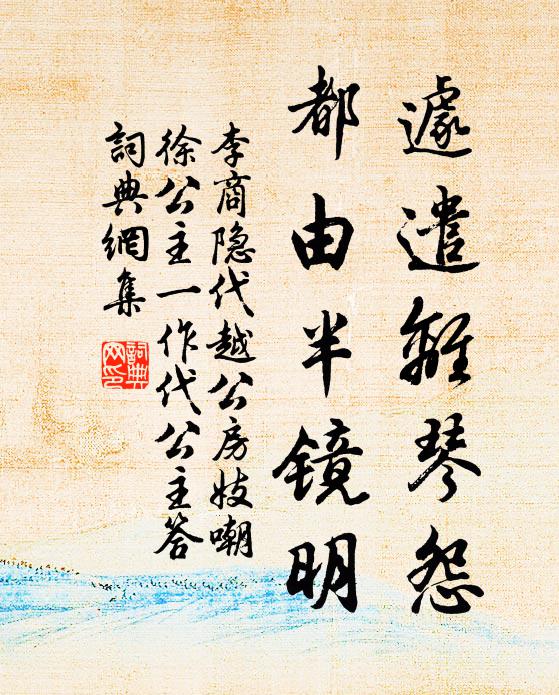 遽遣離琴怨
都由半镜明
李商隐代越公房妓嘲
徐公主一作代公主答
詞典網集
詞典
网印